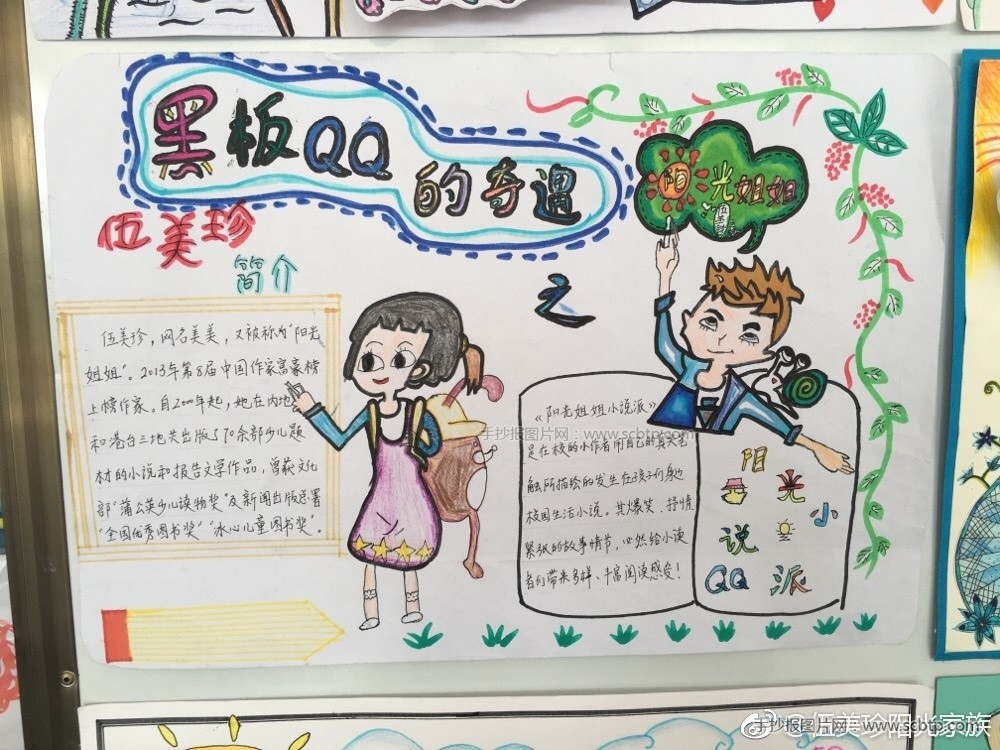 黑板QQ
的奇遇
阳光姐姐
伍美珍
简介
之
伍美珍，网名美美，又被称为“阳光
姐姐”。2013年第8届中国作家富豪榜
上榜作家。自2000年起，她在内地
和港台三地共出版了70余部少儿题
材的小说和报告文学作品，曾获文化
部“蒲公英少儿读物奖”及新闻出版总署
“全国优秀图书奖”“冰心儿童图书奖”。
《阳光姐姐小说派》
是在校的小作者用自己的真实
触所描绘的发生在孩子们身边
校园生活小说。其爆笑、抒情
紧张的故事情节，必然给小读
者们带来多样、丰富阅读感受！
阳
光
小
说
QQ 派
手抄报图片网：www.scbtp.com
手抄报图片网：www.scbtp.com
@伍美珍阳光家族